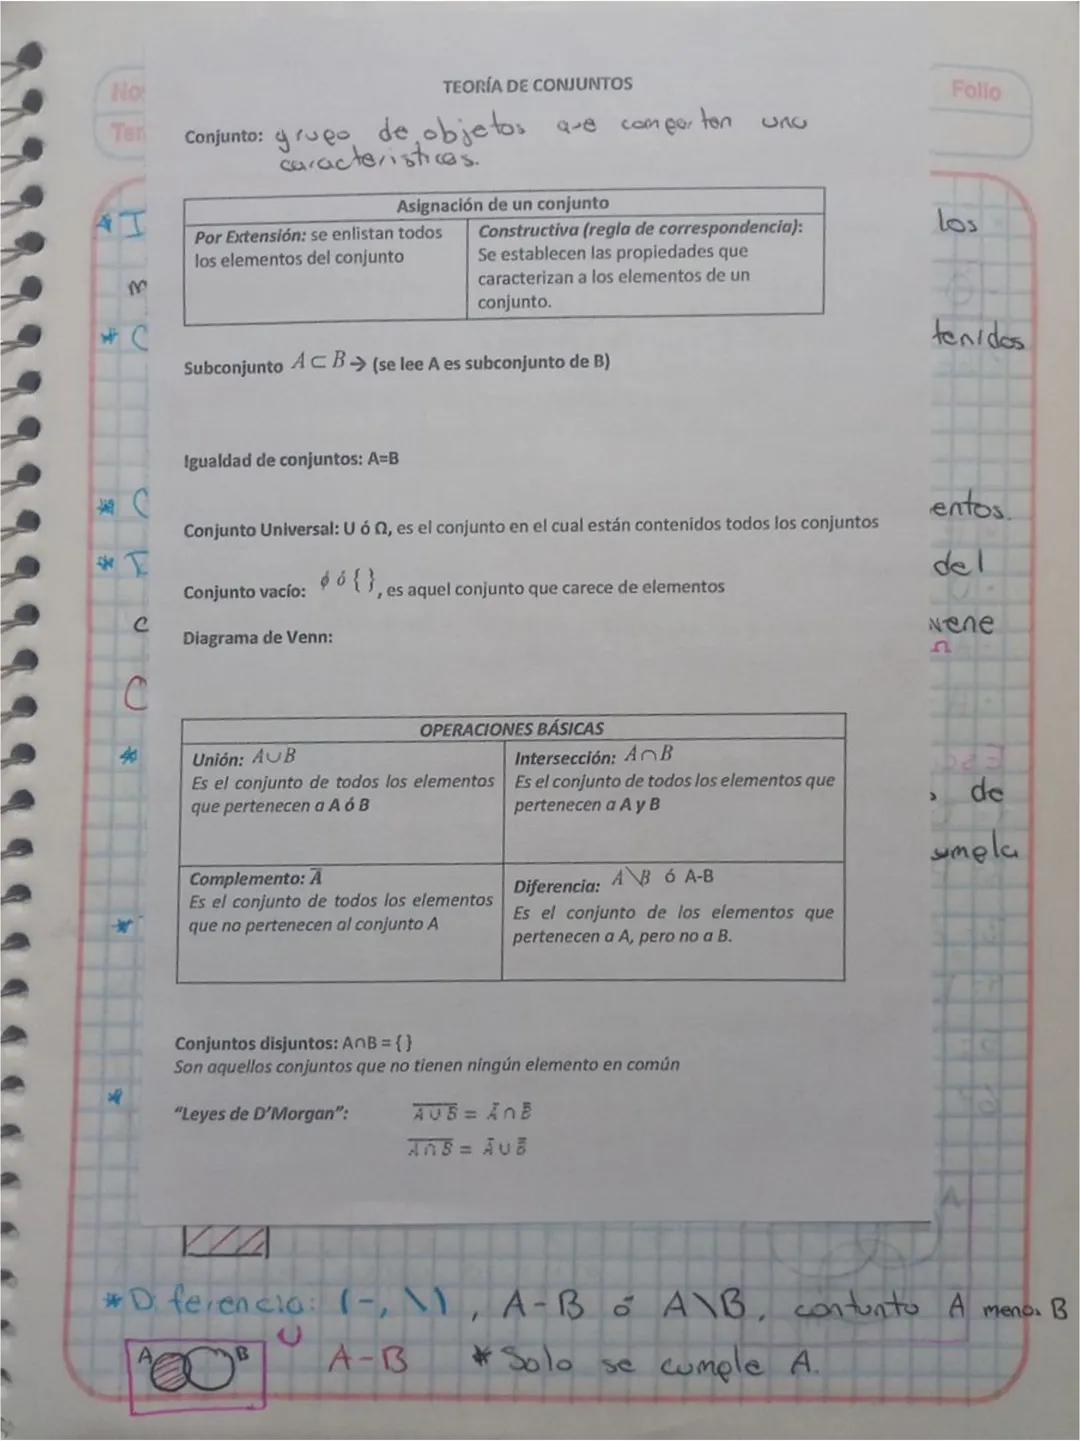 No
Folio
TEORÍA DE CONJUNTOS
Tem
Conjunto: grupo de objetos que comparten una
caracteristicas.
Asignación de un conjunto
Por Extensión: se enlistan todos
los elementos del conjunto
Constructiva (regla de correspondencia):
Se establecen las propiedades que
caracterizan a los elementos de un
conjunto.
* I
los
m
* C
tenidos
Subconjunto A ⊂ B → (se lee A es subconjunto de B)
Igualdad de conjuntos: A=B
* C
entos.
Conjunto Universal: U ó Ω, es el conjunto en el cual están contenidos todos los conjuntos
del
Conjunto vacío: ϕ ó { }, es aquel conjunto que carece de elementos
c
Diagrama de Venn:
Ω
C
OPERACIONES BÁSICAS
*
Unión: A∪B
Es el conjunto de todos los elementos
que pertenecen a A ó B
Intersección: A∩B
Es el conjunto de todos los elementos que
pertenecen a A y B
, de
Complemento: A̅
Es el conjunto de todos los elementos
que no pertenecen al conjunto A
Diferencia: A\B ó A-B
Es el conjunto de los elementos que
pertenecen a A, pero no a B.
*
Conjuntos disjuntos: A∩B = { }
Son aquellos conjuntos que no tienen ningún elemento en común
*
"Leyes de D'Morgan": A̅∪̅B̅ = A̅ ∩ B̅
A̅∩̅B̅ = A̅ ∪ B̅
* Diferencia: (-, \), A-B ó A\B, conjunto A menos B
A B U A-B * Solo se cumple A.